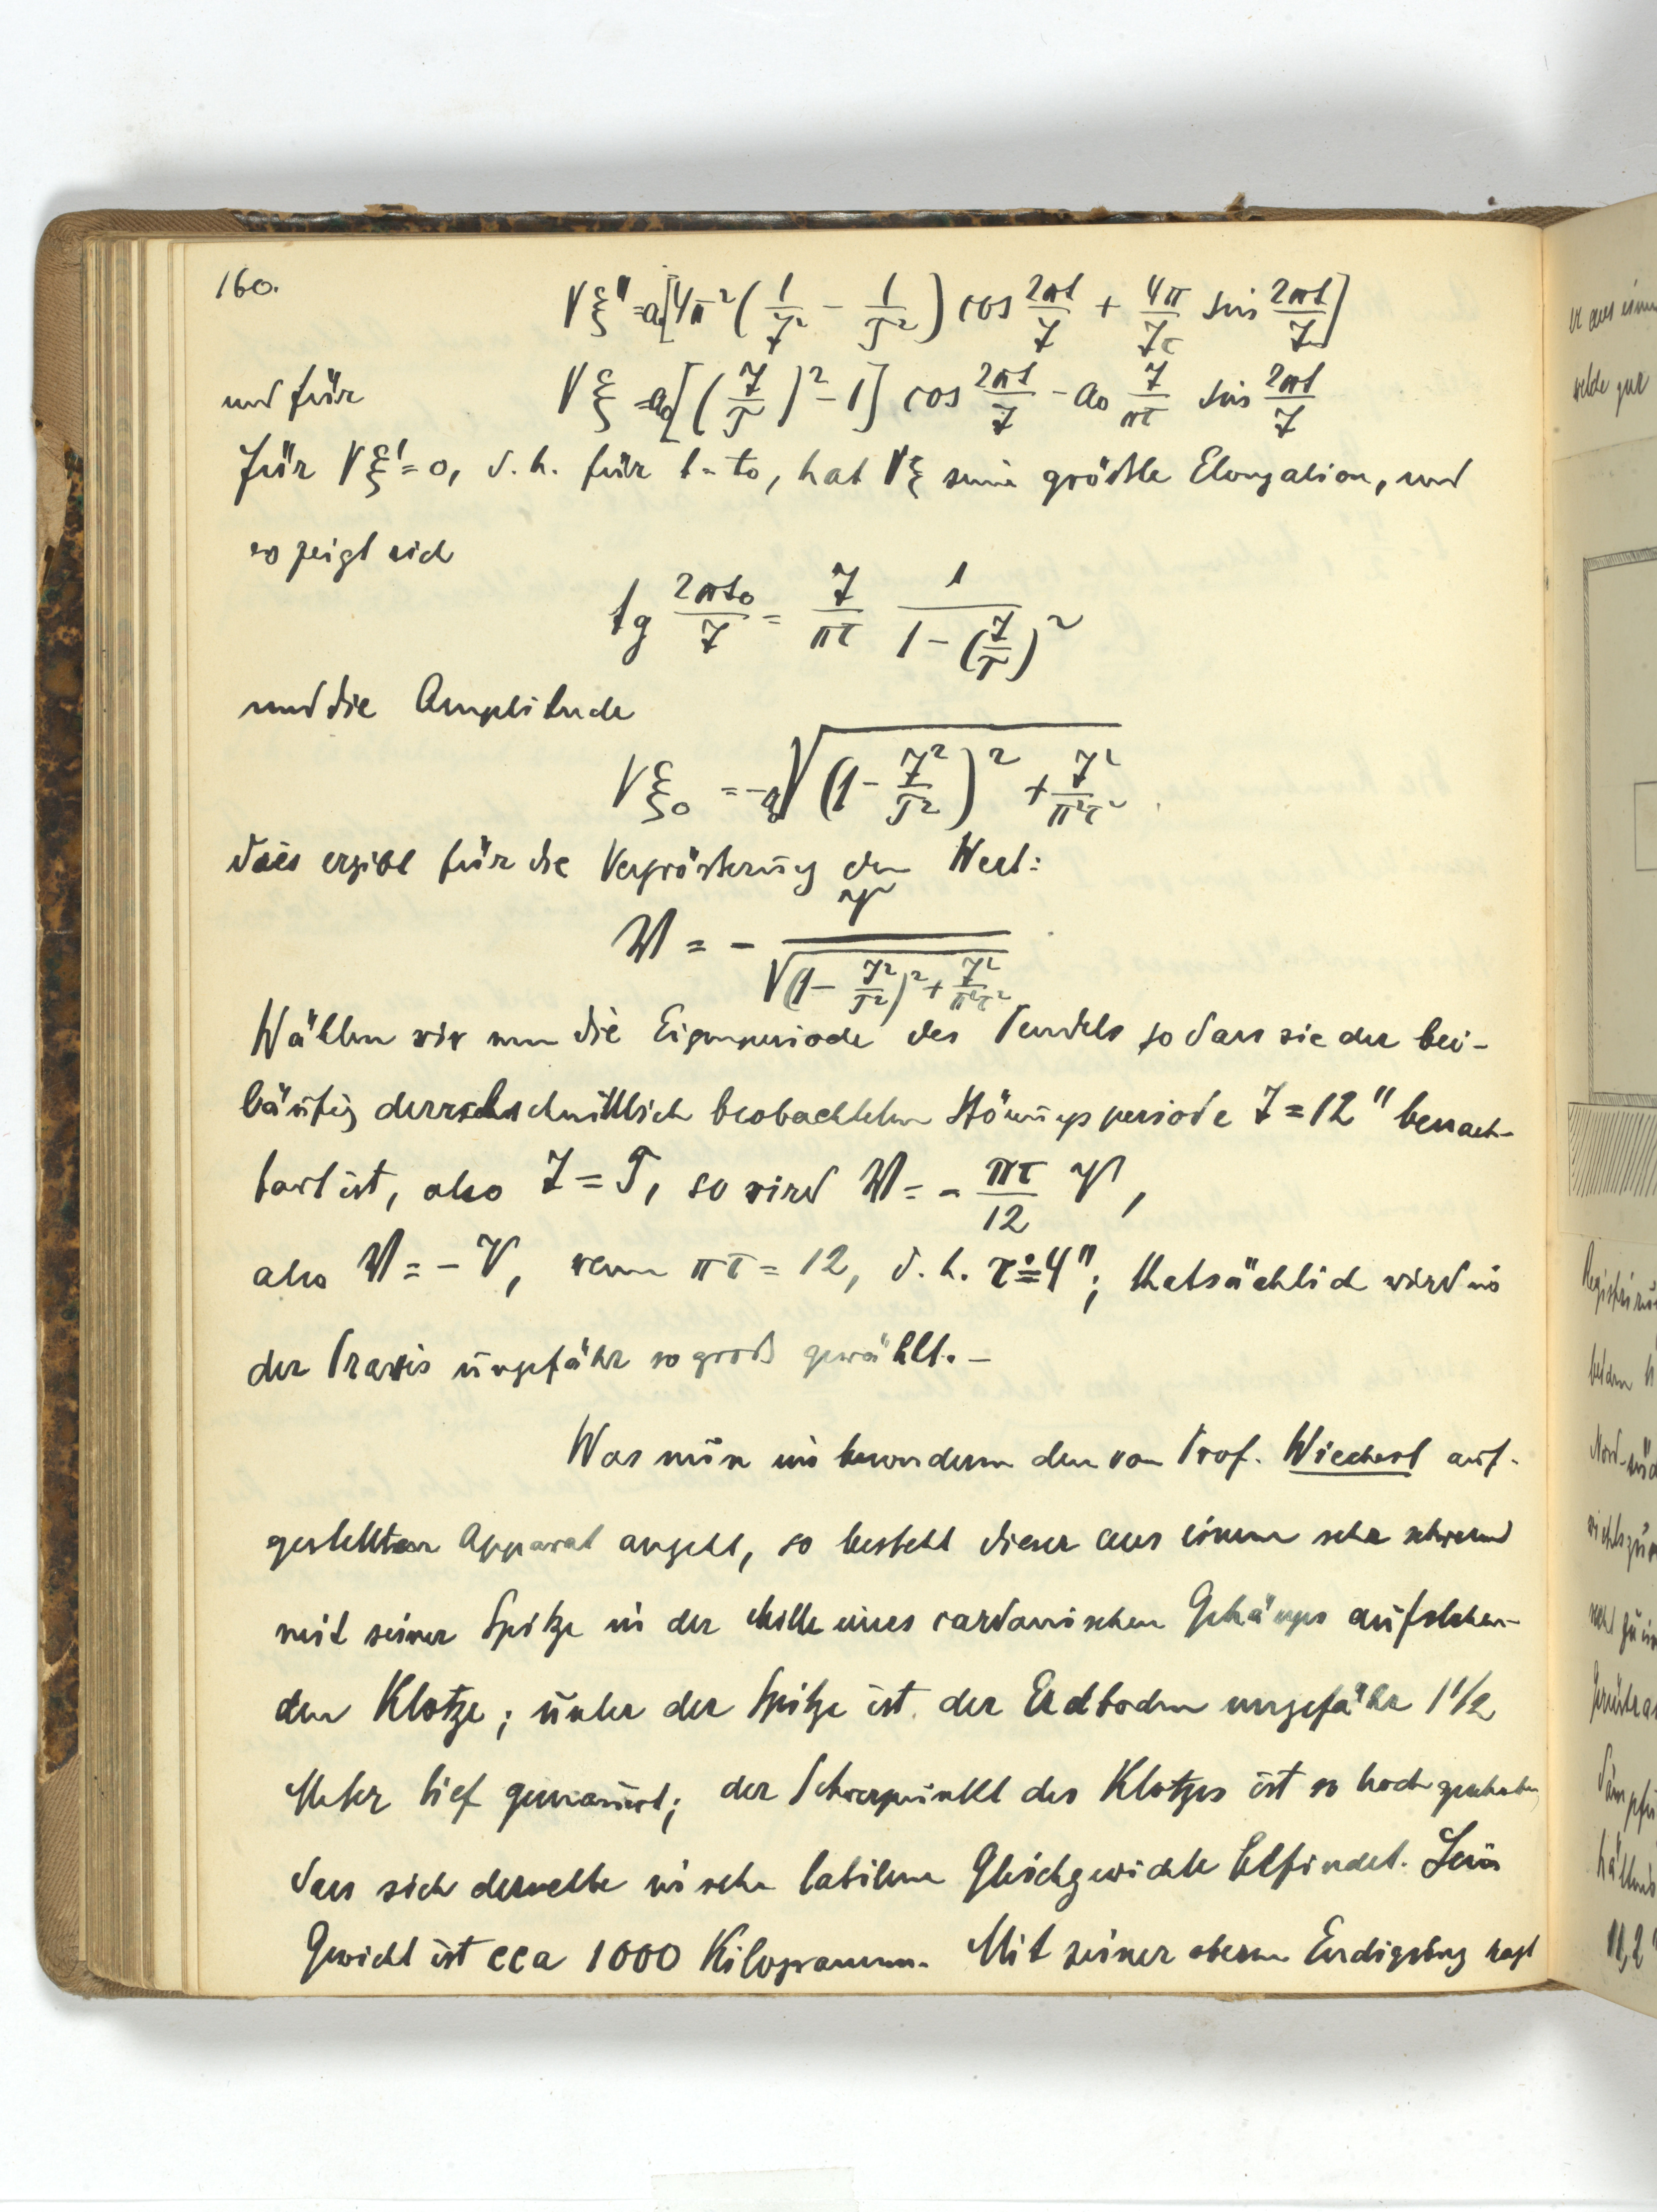 160.
Vξ'' = a₀[4π²(1/T² − 1/𝒯²) cos 2πt/T + 4π/Tτ sin 2πt/T]
und für Vξ = a₀[(T/𝒯)² − 1] cos 2πt/T − a₀ T/πτ sin 2πt/T
für Vξ' = 0, d. h. für t = t₀, hat Vξ seine größte Elongation, und
es zeigt sich
tg 2πt₀/T = T/πτ 1/(1 − (T/𝒯)²)
und die Amplitude
Vξ₀ = −a₀√((1 − T²/𝒯²)² + T²/π²τ²)
dies ergibt für die Vergrößerung den Wert:
W = − V/√((1 − T²/𝒯²)² + T²/π²τ²)
Wählen wir nun die Eigenperiode des Pendels so dass sie der bei-
läufig durchschnittlich beobachteten Störungsperiode T = 12" benach-
bart ist, also T = 𝒯, so wird W = − πτ/12 V,
also W = − V, wenn πτ = 12, d. h. τ ≐ 4"; thatsächlich wird τ in
der Praxis ungefähr so groß gewählt. –
Was nun im besonderen den von Prof. Wiechert auf-
gestellten Apparat angeht, so besteht dieser aus einem sehr schweren
mit seiner Spitze in der Mitte eines cardanischen Gehänges aufstehen-
den Klotze; unter der Spitze ist der Erdboden ungefähr 1 1/2
Meter tief gemauert; der Schwerpunkt des Klotzes ist so hoch gehoben
dass sich derselbe in sehr labilem Gleichgewichte befindet. Sein
Gewicht ist cca 1000 Kilogramm. Mit seiner oberen Endigung ragt